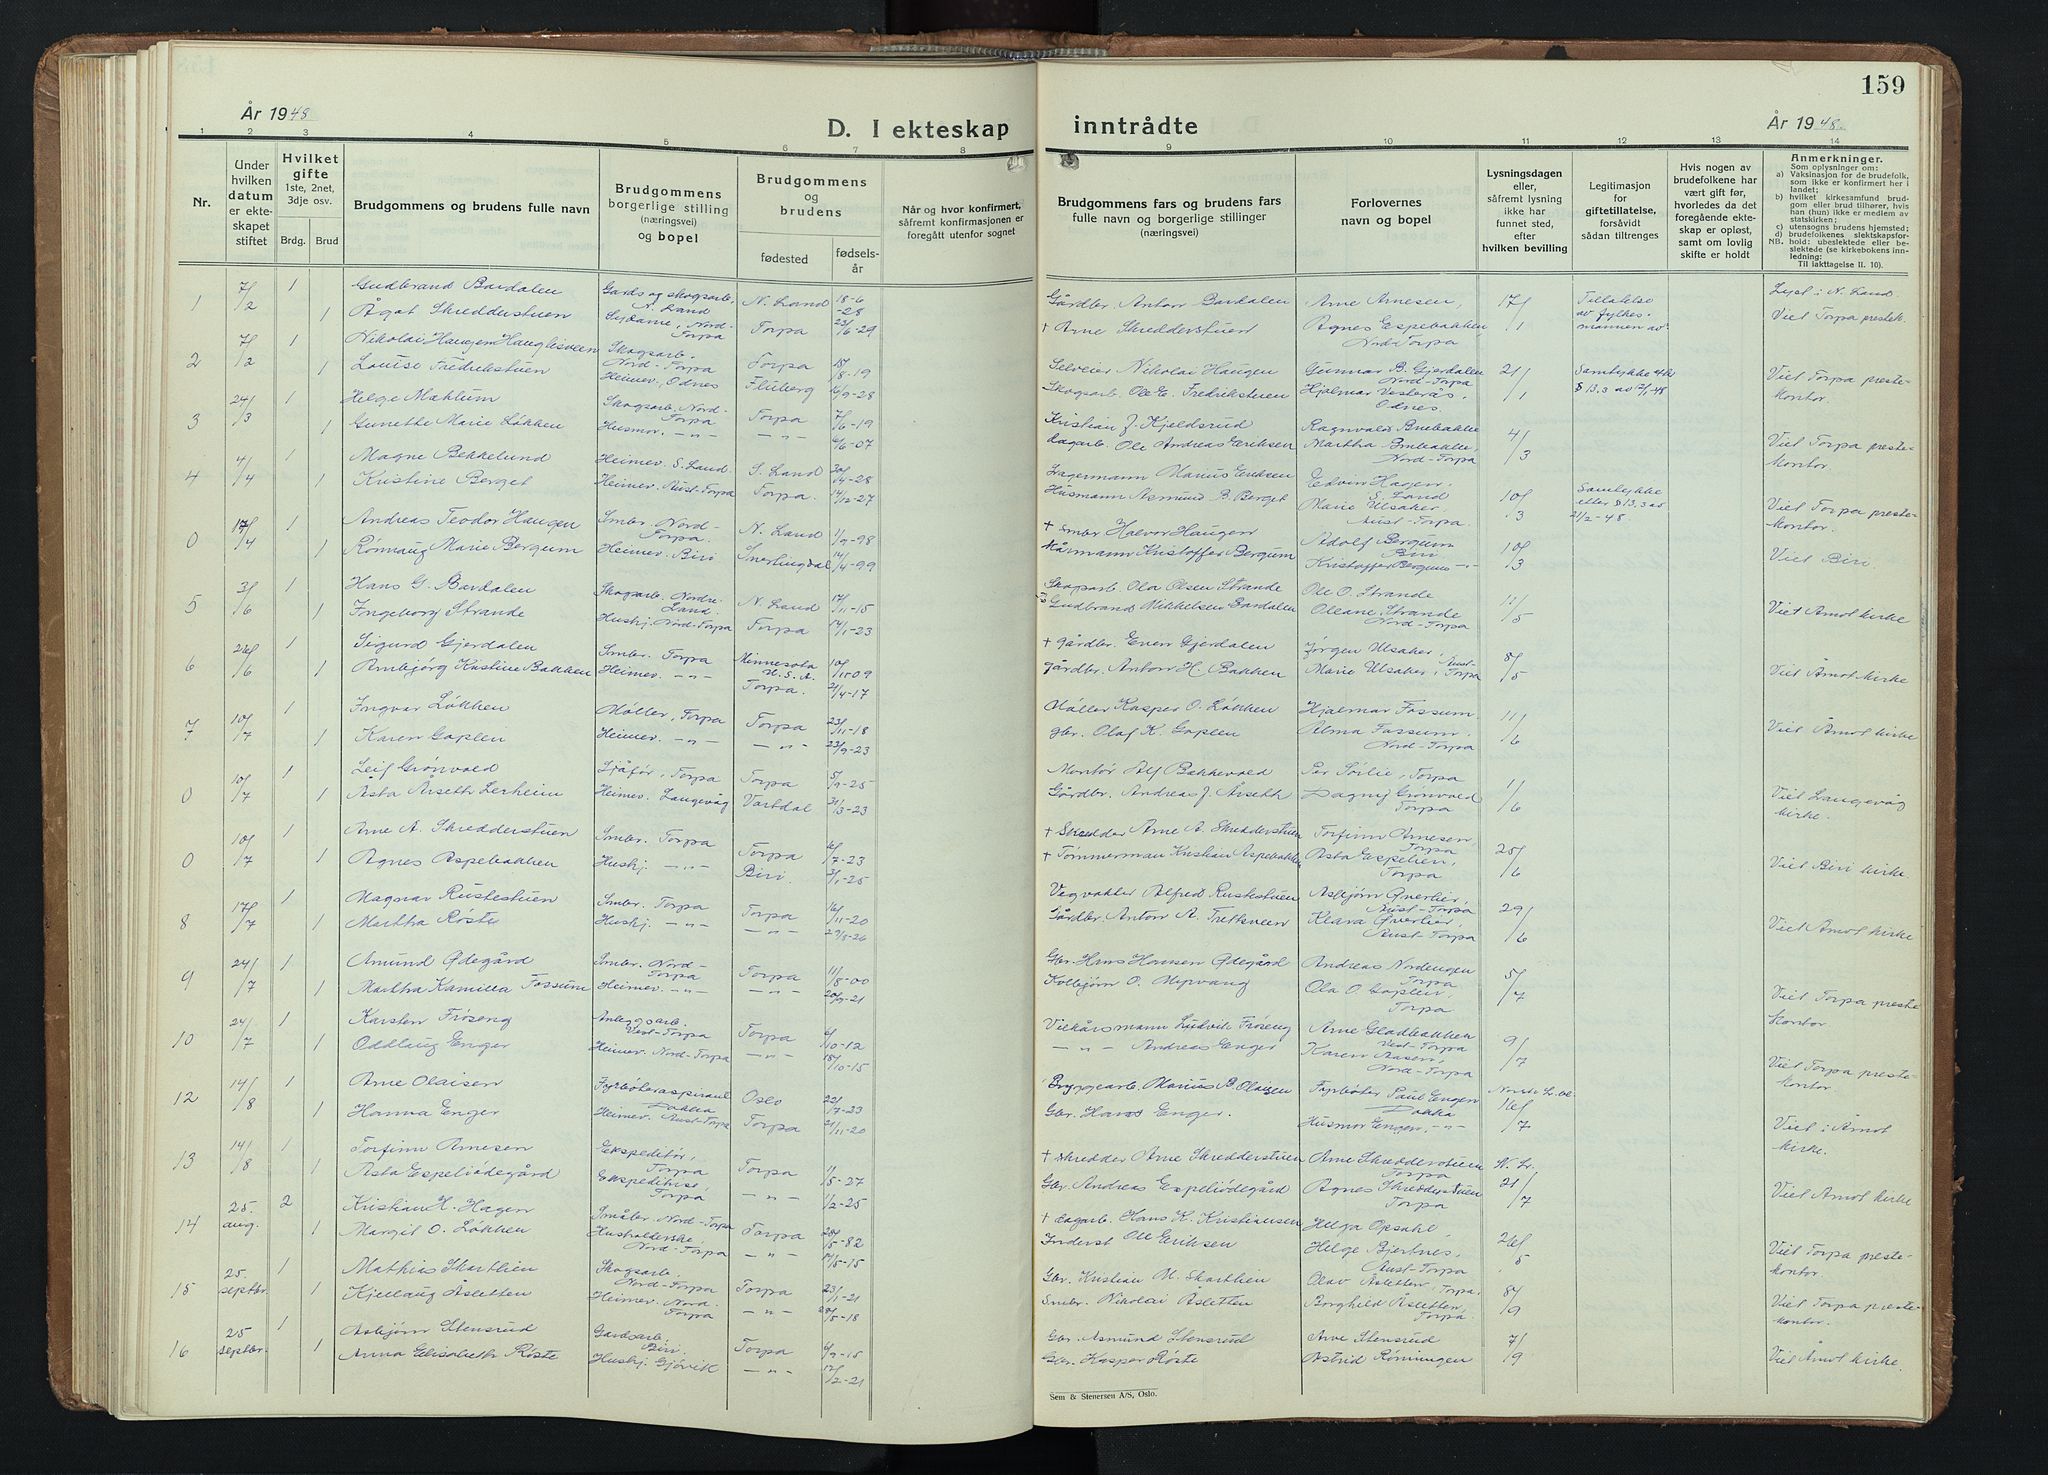 159
År 1948
D. I ekteskap inntrådte
År 1948.
1 2 3 4 5 6 7 8 9 10 11 12 13 14
Nr.
Under hvilken datum er ekteskapet stiftet
Hvilket gifte
1ste, 2net, 3dje osv.
Brdg. Brud
Brudgommens og brudens fulle navn
Brudgommens borgerlige stilling (næringsvei) og bopel
Brudgommens og brudens
fødested
fødselsår
Når og hvor konfirmert, såfremt konfirmasjonen er foregått utenfor sognet
Brudgommens fars og brudens fars fulle navn og borgerlige stillinger (næringsvei)
Forlovernes navn og bopel
Lysningsdagen eller, såfremt lysning ikke har funnet sted, efter hvilken bevilling
Legitimasjon for giftetillatelse, forsåvidt sådan tiltrenges
Hvis nogen av brudefolkene har vært gift før, hvorledes da det foregående ekteskap er opløst, samt om lovlig skifte er holdt
Anmerkninger.
Som oplysninger om:
a) Vaksinasjon for de brudefolk, som ikke er konfirmert her i landet;
b) hvilket kirkesamfund brudgom eller brud tilhører, hvis han (hun) ikke er medlem av statskirken;
c) utensogns brudens hjemsted;
d) brudefolkenes slektskapsforhold: ubeslektede eller beslektede (se kirkebokens innledning:
NB.
Til iakttagelse II. 10).
1 7/2 1 Gudbrand Bardalen Gards og skogsarb. N. Land N. Land 18-6-28 Gårdbr. Anton Bardalen Arne Arnesen, 17/1 Tillatelse av fylkesmannen av Lyst i N. Land
1 Ågot Skredderstuen Nord-Torpa Torpa 23/6-29 + Arne Skredderstuen Agnes Espebakken Nord Torpa Viet Torpa prestek.
2 7/2 1 Nikolai Haugen Skogsarb. Nord-Torpa Torpa 15/8-19 Selveier Nikolai Haugen Gunnar B. Gjerdalen Nord-Torpa 21/1 Samtykke § 13.3 Viet Torpa prestekontor.
1 Louise Fredrikstuen Heimev. Odnes Fluberg 16/9-28 Skogsarb. Ole E. Fredrikstuen Hjalmar Vesterås. Odnes.
3 24/3 1 Helge Mæhlum Skogsarb. Nord-Torpa Torpa 7/6-19 Kristian J. Kjeldsrud Ragnvald 4/3 Viet Torpa prestekontor.
1 Gunette Marie Løkken Husmor. -"- -"- 6/6-07 Dagarb. Ole Andreas Eriksen Martha Nord-Torpa
4 4/4 1 Magne Bekkelund Heimev. S. Land. S. Land 30/4-28 Lagermann Marius Eriksen Edvin Hagen. S. Land 10/3 Samtykke etter § 13.3 av 2/2-48. Viet Torpa prestekontor.
1 Kristine Berget Heimev. Aust-Torpa Torpa. 14/12-27 Husmann Asmund B. Berget Marie Ulsaker Aust-Torpa.
0 17/4 1 Andreas Teodor Haugen Smbr. Nord-Torpa. N. Land 11/9-98 + smbr Halvor Haugen Adolf Bergum Biri 10/3 Viet Biri.
1 Rønnaug Marie Bergum Heimev. Biri Snertingdal 14/4-99 Kårmann Kristoffer Bergum Kristoffer Bergum -"-
5 3/6 1 Hans G. Bardalen Skogsarb. Nordre Land. N. Land 17/11-15 Skogsarb. Ola Olsen Strande Ole O. Strande 11/5 Viet Åmot kirke
1 Ingeborg Strande Hushj. Nord-Torpa Torpa 14/1-23 Gudbrand Mikkelsen Bardalen Oleane Strande Nord-Torpa
6 26/6 1 Sigurd Gjerdalen Smbr. Torpa Minnesota U.S.A. 10/11-09 + gårdbr. Even Gjerdalen Jørgen Ulsaker, 8/5 Viet Åmot kirke
1 Ambjørg Kristine Bakken Heimev. -"- Torpa. 21/4-17 gårdbr. Anton H. Bakken Marie Ulsaker, Aust-Torpa
7 10/7 1 Ingvar Løkken Møller, Torpa Torpa 23/11-18 Møller Kasper O. Løkken Hjalmar Fossum. 11/6 Viet Åmot kirke
1 Karen Goplen Heimev. -"- -"- 23/9-23 gbr. Olaf K. Goplen Alma Fossum. Nord-Torpa
0 10/7 1 Leif Grønvold Sjåfør, Torpa Torpa 5/9-25 Montør Alf Bakkevold Per Sørlie, Torpa 1/6 Viet Langevåg kirke.
1 Asta Årseth Lerheim Heimev. Langevåg Vartdal 31/3-23 Gårdbr. Andreas J. Årseth Dagny Grønvold Torpa
0 10/7 1 Arne A. Skredderstuen Smbr. Torpa Torpa 6/7-23 + Skredder Arne A. Skredderstuen Torfinn Arnesen, Torpa 25/6 Viet Biri kirke.
1 Agnes Aspebakken Hushj. -"- Biri. 3/1-25 + Tømmerman Kristian Aspebakken Asta Espelien, Torpa
8 17/7 1 Magnar Rustestuen Smbr. Torpa Torpa 16/11-20 Vegvakter Alfred Rustestuen Asbjørn Øverlier, Aust-Torpa 29/6 Viet Åmot kirke
1 Martha Røste Hushj. -"- -"- 29/8-26 Gårdbr. Anton A. Tretteveen Klara Øverlier, Aust-Torpa
9 24/7 1 Amund Ødegård Smbr. Nord-Torpa Torpa 11/8-00 Gbr. Hans Hansen Ødegård Andreas Nordengen Torpa 5/7 Viet Torpa prestekontor
1 Martha Kamilla Fossum Heimev. -"- -"- 20/9-21 Kolbjørn O. Myrvang Ola O. Goplen, Torpa
10 24/7 1 Karsten Frøseng Anleggsarb. Vest-Torpa Torpa 6/10-12 Vilkårsmann Ludvik Frøseng Arne Gladbakken Vest-Torpa 9/7 Viet Torpa prestekontor
1 Oddlaug Enger Heimev. Nord-Torpa -"- 18/10-15 -"- Andreas Enger Karen Aasen, Nord-Torpa
12 14/8 1 Arne Olaisen Fyrbøteraspirant Dokka Oslo 22/7-23 Bryggearb. Marius B. Olaisen Fyrbøter Paul Engen Dokka 16/7 Viet i Åmot kirke.
1 Hanna Enger Heimev. Aust-Torpa Torpa 21/11-20 Gbr. Hans Enger. Husmor Engen, -"-
13 14/8 1 Torfinn Arnesen Ekspeditør, Torpa Torpa 1/5-27 + skredder Arne Skredderstuen Arne Skredderstuen Torpa N. Lr. 21/7 Viet Åmot kirke
1 Asta Espeliødegård Ekspeditrise, Torpa -"- 1/2-25 Gbr. Andreas Espeliødegård Agnes Skredderstuen Torpa
14 25. aug. 2 Kristian H. Hagen Småbr. Nord-Torpa Torpa 28/5-82 + dagarb. Hans K. Kristiansen Helga Opsahl 26/5 Viet Torpa prestekontor.
1 Margit O. Løkken Husholderske, Nord-Torpa -"- 17/5-15 Inderst Ole Eriksen Helge Bjertnes, Aust-Torpa
15 25. septbr. 1 Mathias Skartlien Skogsarb. Nord-Torpa Torpa 23/1-21 Gbr. Kristian M. Skartlien Olav Åsletten, Torpa. 8/9 Viet Torpa prestekontor.
1 Kjellaug Åsletten Heimev. Nord-Torpa -"- 28/5-18 Smbr. Nikolai Åsletten Borghild Åsletten, Torpa.
16 25 septbr. 1 Asbjørn Stensrud Gardsarb. Biri Torpa 6/9-15 Gbr. Asmund Stensrud Arve Stensrud 7/9 Viet Åmot kirke.
1 Anna Elisabeth Røste Hushj. Gjøvik -"- 17/2-21 Gbr. Kasper Røste Astrid Rønningen
Sem & Stenersen A/S, Oslo.